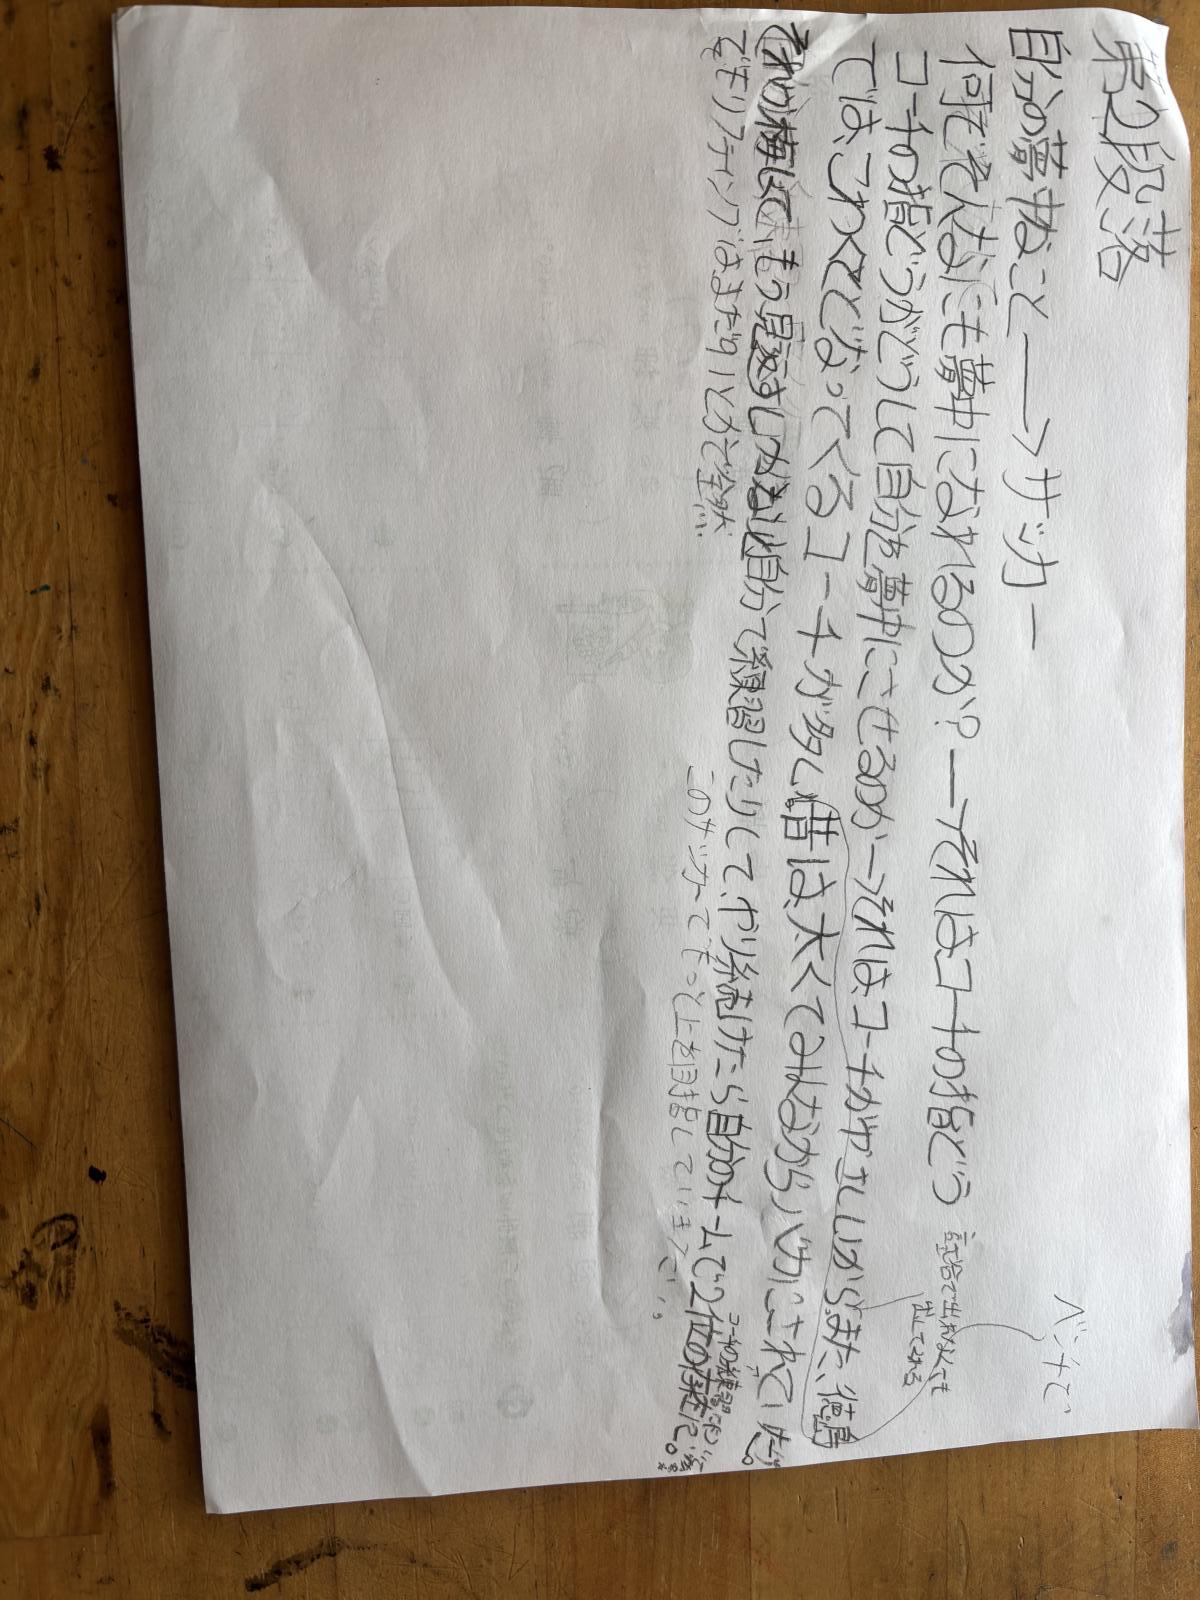 第2段落
自分の夢中なこと→サッカー
何をそんなにも夢中になれるのか?→それはコーチの指どう
コーチの指どうがどうして自分を夢中にさせるのか→それはコーチがやさしいから。また、徳島
ではこわくてどなってくるコーチが多い昔は、太くてみんなからバカにされていた。
その悔しさ、もう見返すしかない自分で練習したりして、やり続けたら自分のチームで2位の存在に。
でもリフティングはまだ91とかで全然…
このサッカーでもっと上を目指しています。
ベンチで
試合で出れなくても
出してくれる
コーチの練習